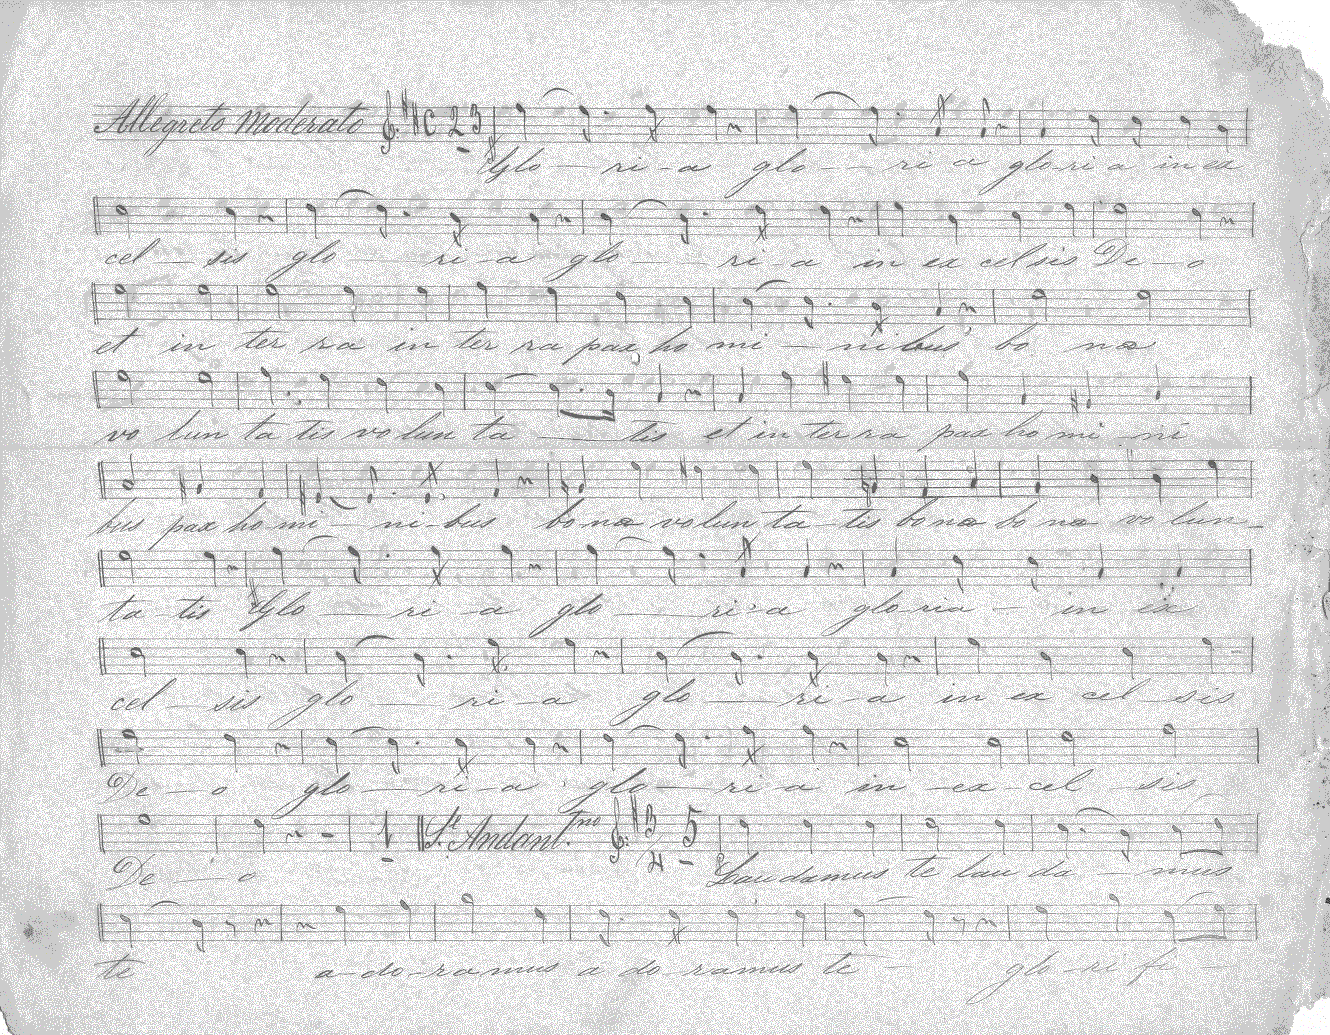 Allegreto Moderato C 2 3
Glo — ri - a glo — ri a glo - ri a in ex
cel — sis glo — ri - a glo — ri - a in ex cel sis De - o
et in ter ra in ter ra pax ho mi - ni bus bo næ
vo lun ta tis vo lun ta — tis et in ter ra pax ho mi - ni
bus pax ho mi - ni - bus bo næ vo lun ta - tis bo næ bo næ vo lun -
ta - tis Glo — ri - a glo — ri - a glo ria - in ex
cel - sis glo — ri - a glo — ri - a in ex cel - sis
De - o glo — ri - a glo — ri a in ex - cel sis
1 Andantno 3 4 5
De — o Laudamus te lau da - mus
te a - do - ra mus a do - ra mus te - glo - ri fi -